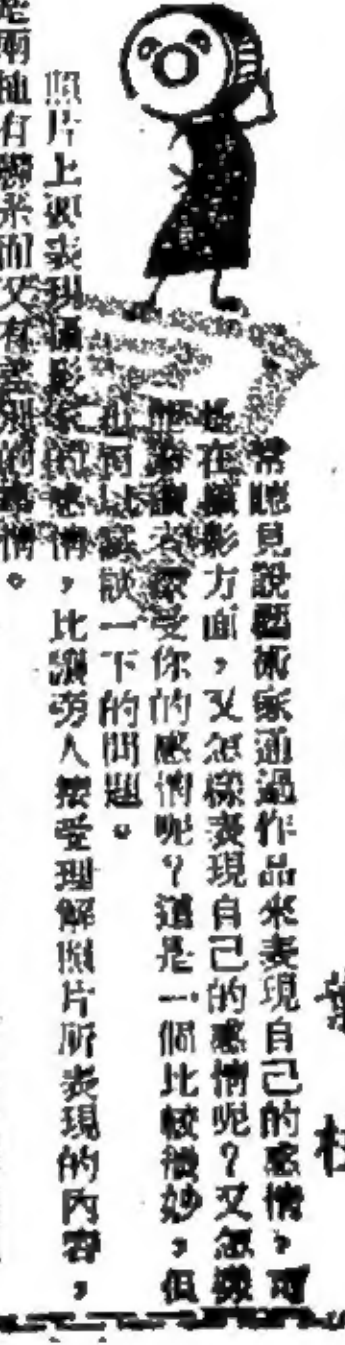 常聽見說藝術家通過作品來表現自己的感情，可
是在攝影方面，又怎樣表現自己的感情呢？又怎樣
能讓讀者感受你的感情呢？這是一個比較微妙，但
也何妨嘗試一下的問題。
照片上被表現攝影家的感情，比讓旁人接受理解照片所表現的內容，
是兩種有聯系而又有差別的事情。